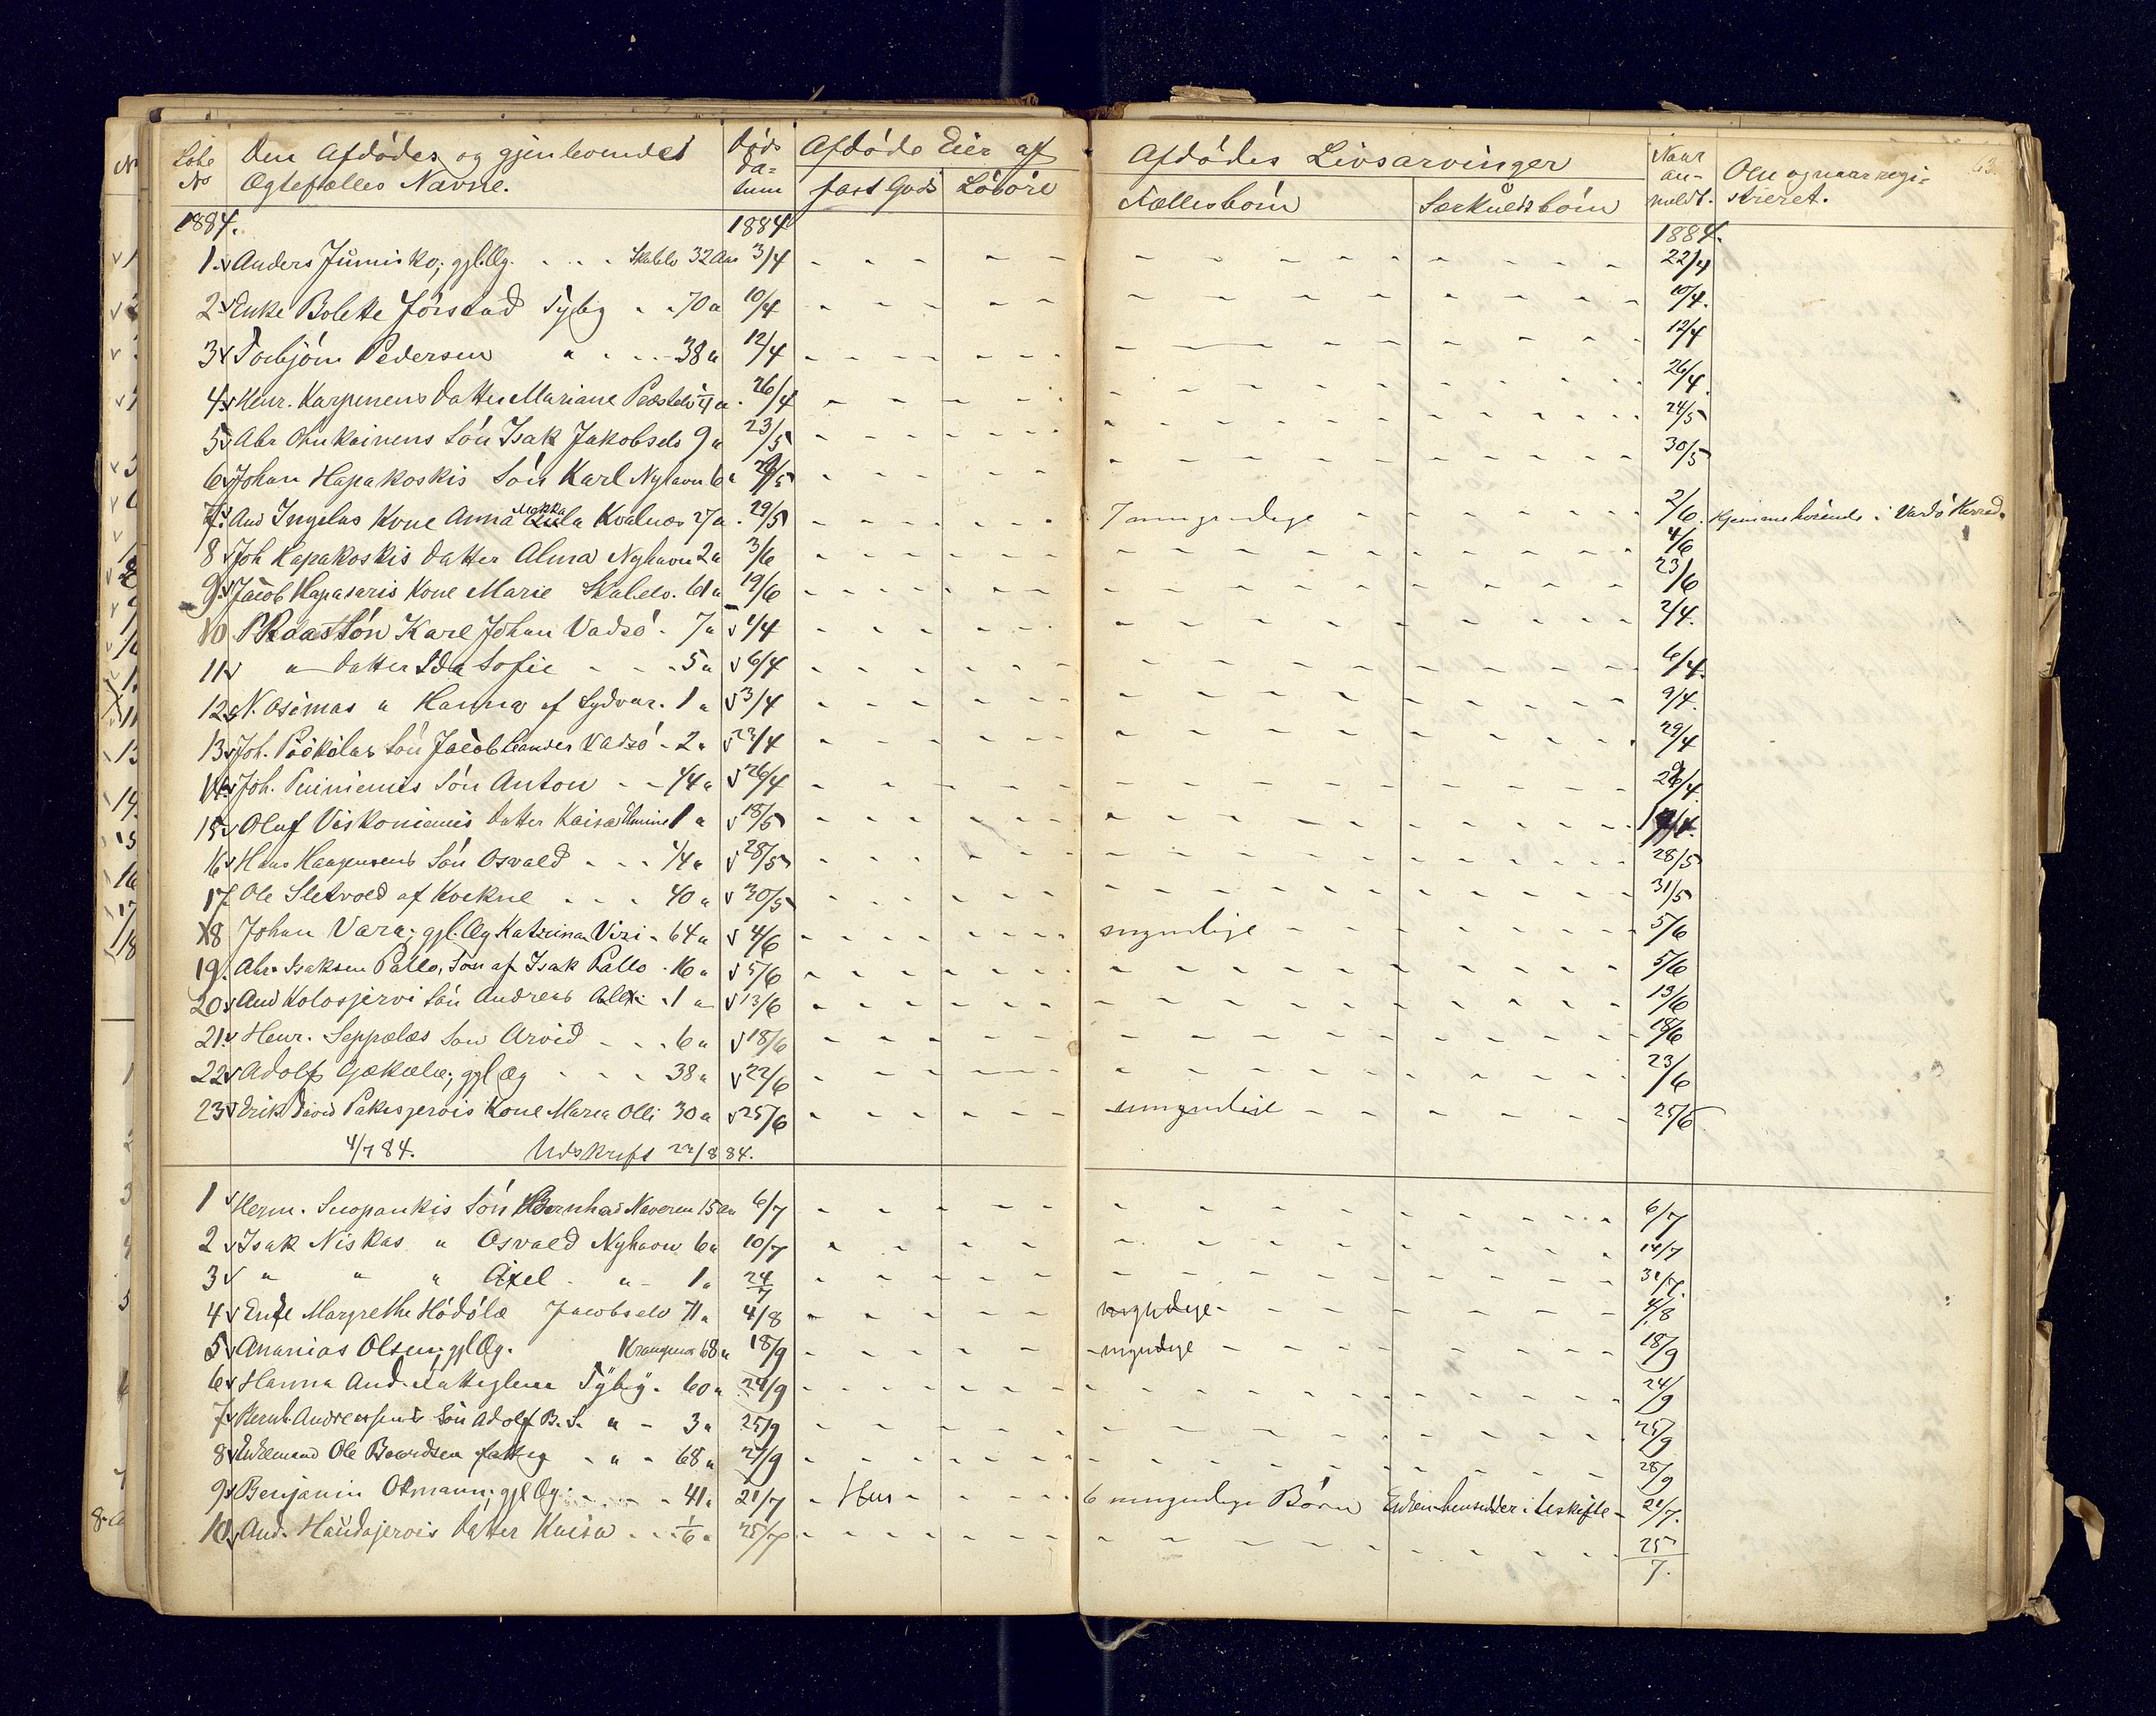 Løbe No Den Afdødes og gjenlevendes Ægtefælles Navne. Døds da= tum Afdøde Eier af fast Gods Løsøre Afdødes Livsarvinger Fællesbørn Særkuldsbørn Naar an= meldt. Om og naar regi= streret. 63
1884. 1884 1884.
1. Anders Junisko; gjl. Æg. Skalelv 32 Aar 3/4 22/4
2 Enke Bolette Jørstad Tyby 70 " 10/4 10/4.
3 Torbjörn Pedersen " 38 " 12/4 12/4
4 Henr. Karpinens Datter Mariane 26/4 26/4.
5 Abr Sön Isak Jakobselv 9 " 23/5 24/5
6 Johan Hapakoskis Sön Karl Nyhavn 6 " 29/5 30/5
7. And Ingelas Kone Anna Kvalnæs 27 " 29/5 7 umyndige 2/6. Hjemmehörende i Vardö Herred.
8 Joh Hapakoskis Datter Alma Nyhavn 2 " 3/6 4/6
9. Jacob Hapasaris Kone Marie Skalelv. 61 " 19/6 23/6
10 P Raas Sön Karl Johan Vadsö. 7 " 1/4 2/4.
11 " Datter Ida Sofie 5 " 6/4 6/4.
12 N. Osimas " Hanna af Sydvar. 1 " 3/4 9/4.
13 Joh. Sön Jacob Leander Vadsö 2 " 22/4 29/4
14 Joh. Sön Anton 1/4 " 26/4 26/4.
15 Oluf Viskoniemis Datter Kaisa 1 " 18/5
16 Hans Haagensens Sön Osvald 1/4 " 28/5 28/5
17 Ole Sletvold af 40 " 30/5 31/5
18 Johan Vara; gjl. Æg Katrina Viri 64 " 4/6 myndige 5/6
19. Abr. Isaksen Pallo, Sön af Isak Pallo 16 " 5/6 5/6
20 And Kolosjervi Sön Andreas Alex: 1 " 13/6 13/6
21. Henr. Seppalas Sön Arvid 6 " 18/6 18/6
22 Adolf; gjl æg 38 " 22/6 23/6
23 Erik David Pakisjervis Kone Maria Olli 30 " 25/6 umyndige 25/6
4/7 84. Udskrift 22/8 84.
1 Herm. Suopankis Sön Bernhard 15 Aar 6/7 6/7
2 Isak Niskas " Osvald Nyhavn 6 " 10/7 14/7
3 " " " Axel " 1 " 24/7 31/7.
4 Enke Margrethe Jacobselv 71 " 4/8 myndige 4/8
5 Ananias Olsen; gjl Æg. 68 " 18/9 myndige 18/9
6 Hanna And. Tyby. 60 " 24/9 24/9
7 Bernh. Andreassens Sön Adolf B. S. " 3 " 25/9 25/9
8 Enkemand Ole fattig " 68 " 27/9 28/9
9 Benjamin; gjl Æg. 41 " 21/7 Hus 6 umyndige Börn Enken hensidder i Uskifte 21/7.
10 And. Haudajervis Datter Kaisa 1/6 " 25/7 25/7.